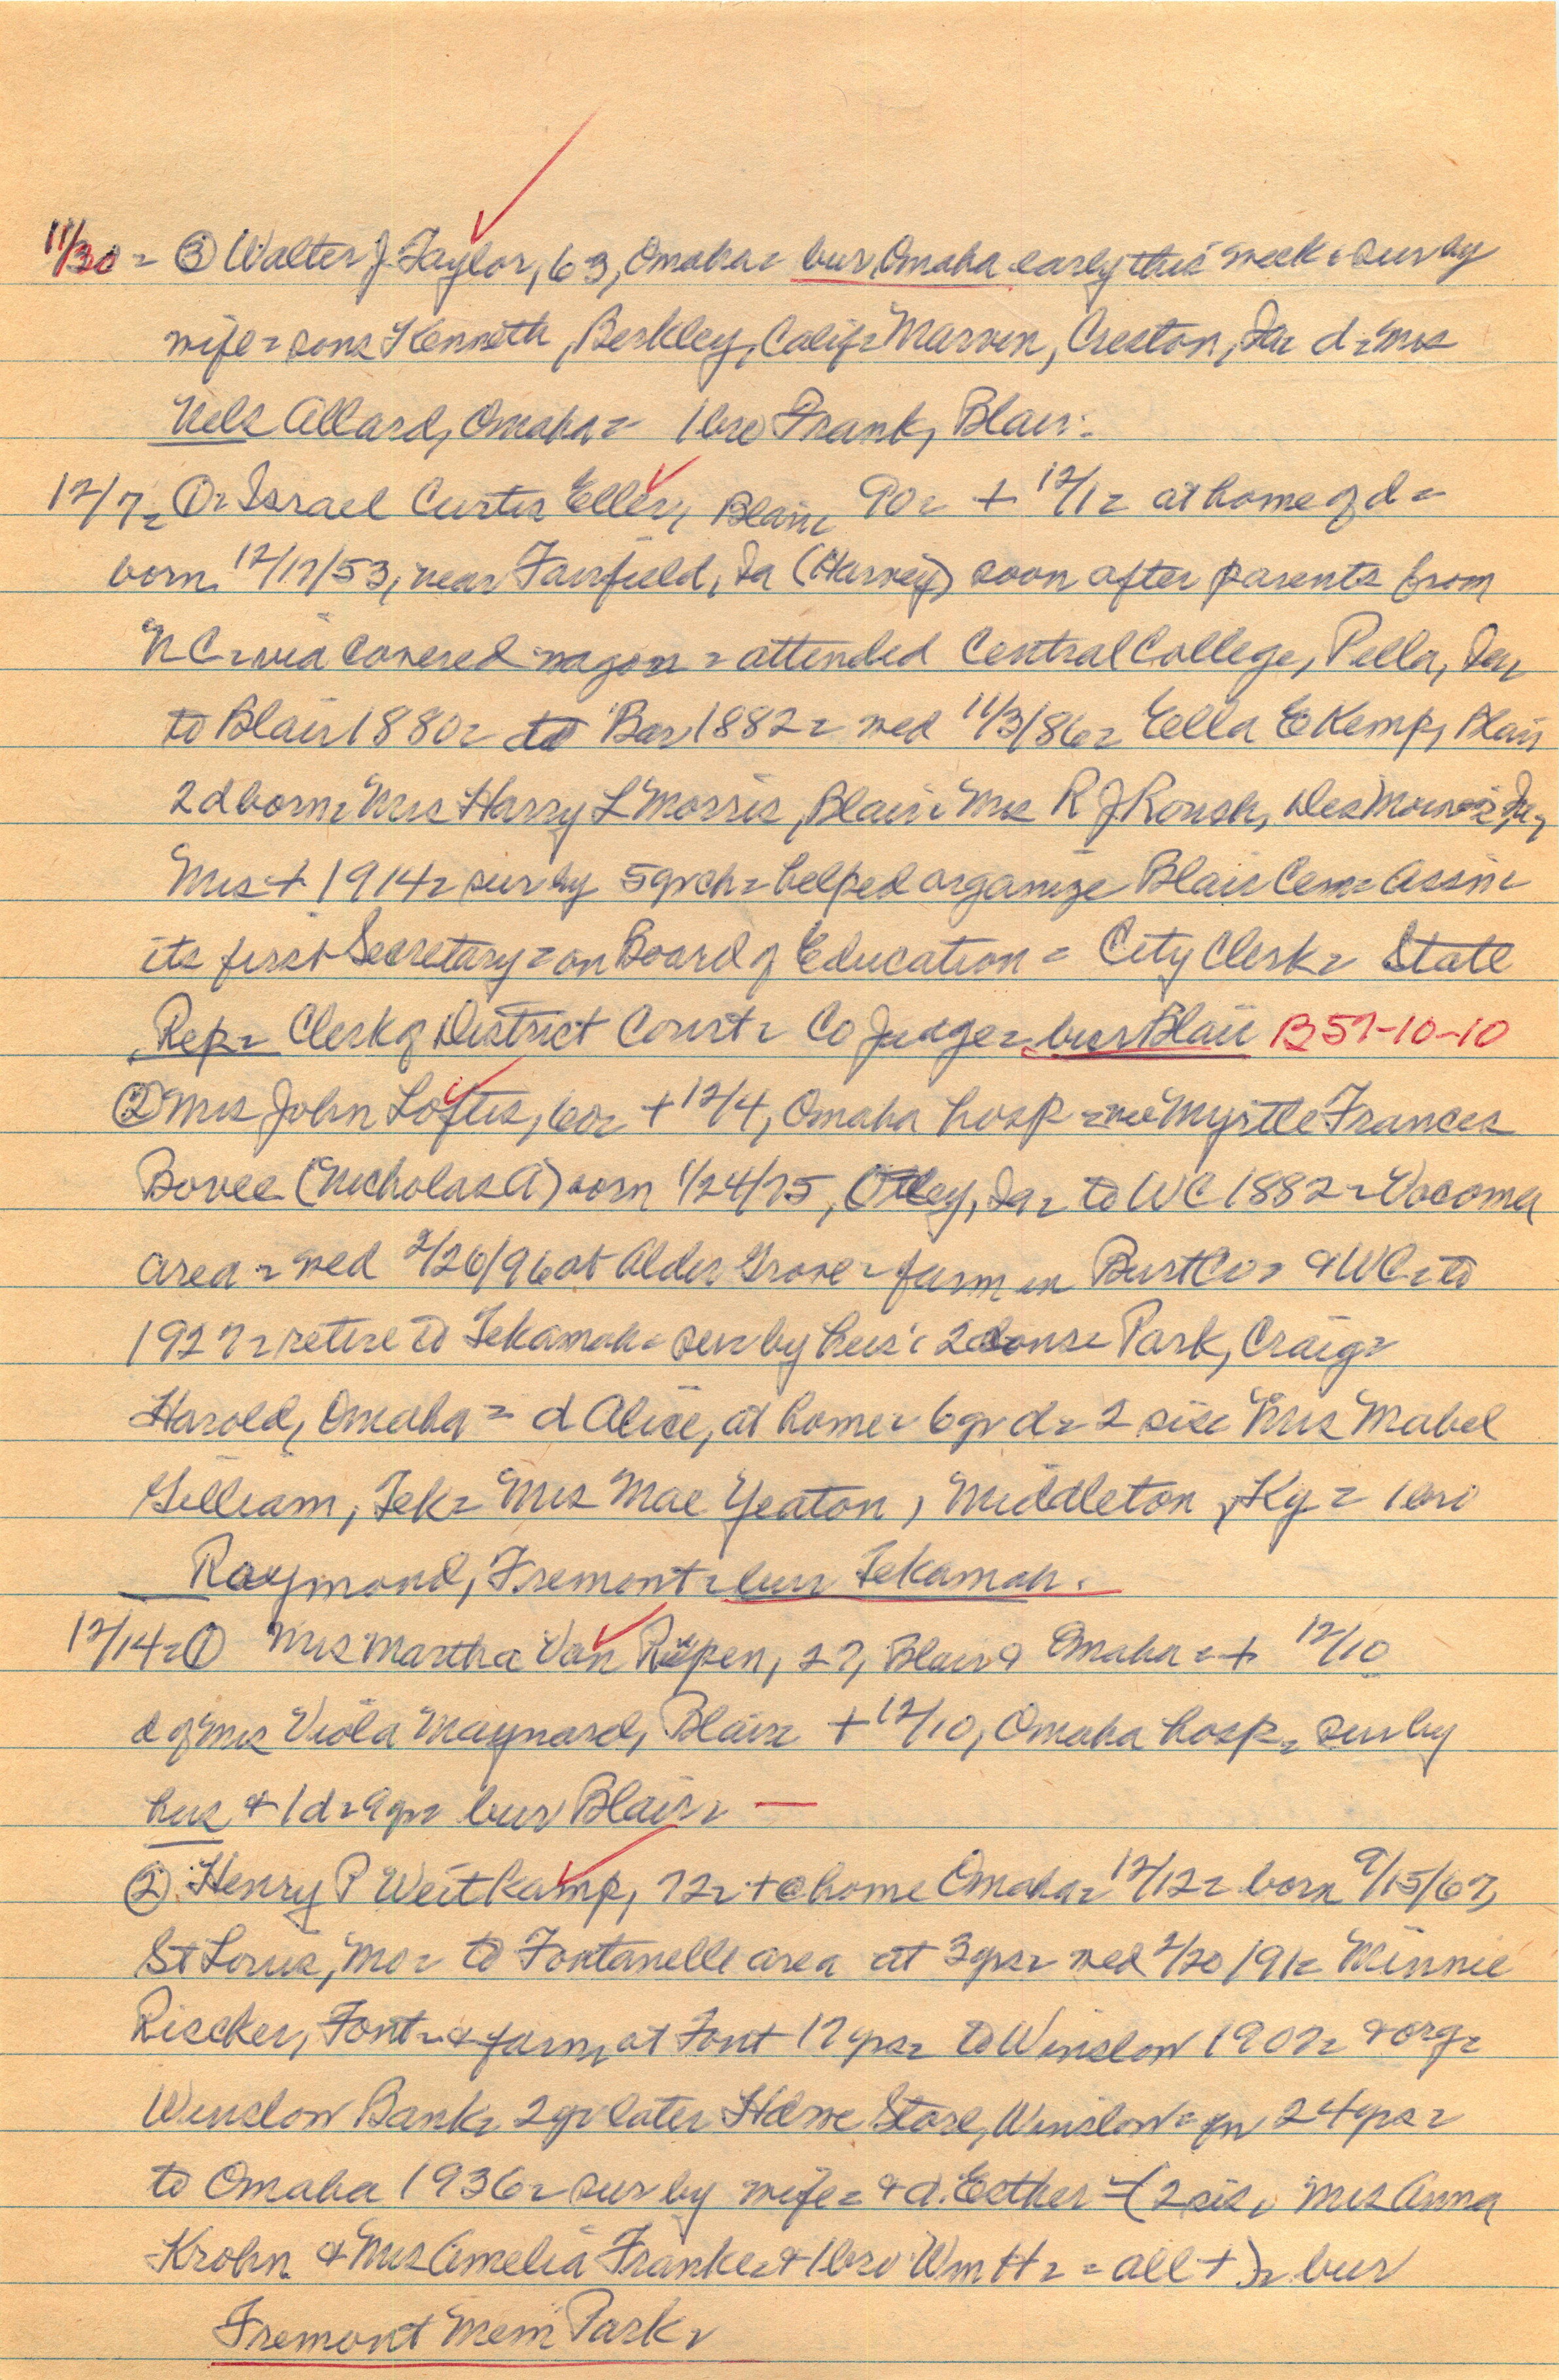 11/30 = ③ Walter J. Taylor, 63, Omaha = bur Omaha early this week = sur by
wife = sons Kenneth, Berkley, Calif = Marvin, Creston, Ia = d = Mrs
Nels Allard, Omaha = 1 bro Frank, Blair.
12/7 = ① = Israel Curtis Eller, Blair 90 = + 12/1 = at home of d =
born 12/17/53, near Fairfield, Ia (Harvey) soon after parents from
N C = via covered wagon = attended Central College, Pella, Ia,
to Blair 1880 = to Bar 1882 = wed 11/3/86 = Ella E Kemp, Blair
2 d born = Mrs Harry L Morris, Blair = Mrs R J Roush, Des Moines Ia,
Mrs + 1914 = sur by 5 gr ch = helped organize Blair Cem = Assn =
its first Secretary = on Board of Education = City Clerk = State
Rep = Clerk of District Court = Co Judge = bur Blair B57-10-10
② Mrs John Loftis, 60 = + 12/4, Omaha hosp = nee Myrtle Frances
Bovee (Nicholas A) born 1/24/75, Otley, Ia = to WC 1882 = Vacoma
area = wed 2/26/96 at Alder Grove = farm in Burt Co = & WC = to
1927 = retire to Tekamah = sur by hus = 2 sons = Park, Craig =
Harold, Omaha = d Alice, at home = 6 gr d = 2 sis = Mrs Mabel
Gilliam, Tek = Mrs Mae Yeaton, Middleton, Ky = 1 bro
Raymond, Fremont = bur Tekamah.
12/14 = ① Mrs Martha Van Ripen, 27, Blair & Omaha = + 12/10
d of Mrs Viola Maynard, Blair = + 12/10, Omaha hosp = sur by
hus & 1 d = 9 yr = bur Blair = —
② Henry P Weitkamp, 72 = + @ home Omaha = 12/12 = born 9/15/67,
St Louis, Mo = to Fontanelle area at 3 yrs = wed 2/20/91 = Minnie
Riecker, Font = & farm, at Font 17 yrs = to Winslow 1907 = & org =
Winslow Bank = 2 yr later Hdwe Store, Winslow = for 24 yrs =
to Omaha 1936 = sur by wife = & d. Esther = (2 sis, Mrs Anna
Krohn & Mrs Amelia Franke = & 1 bro Wm H = = all +) = bur
Fremont Mem Park =